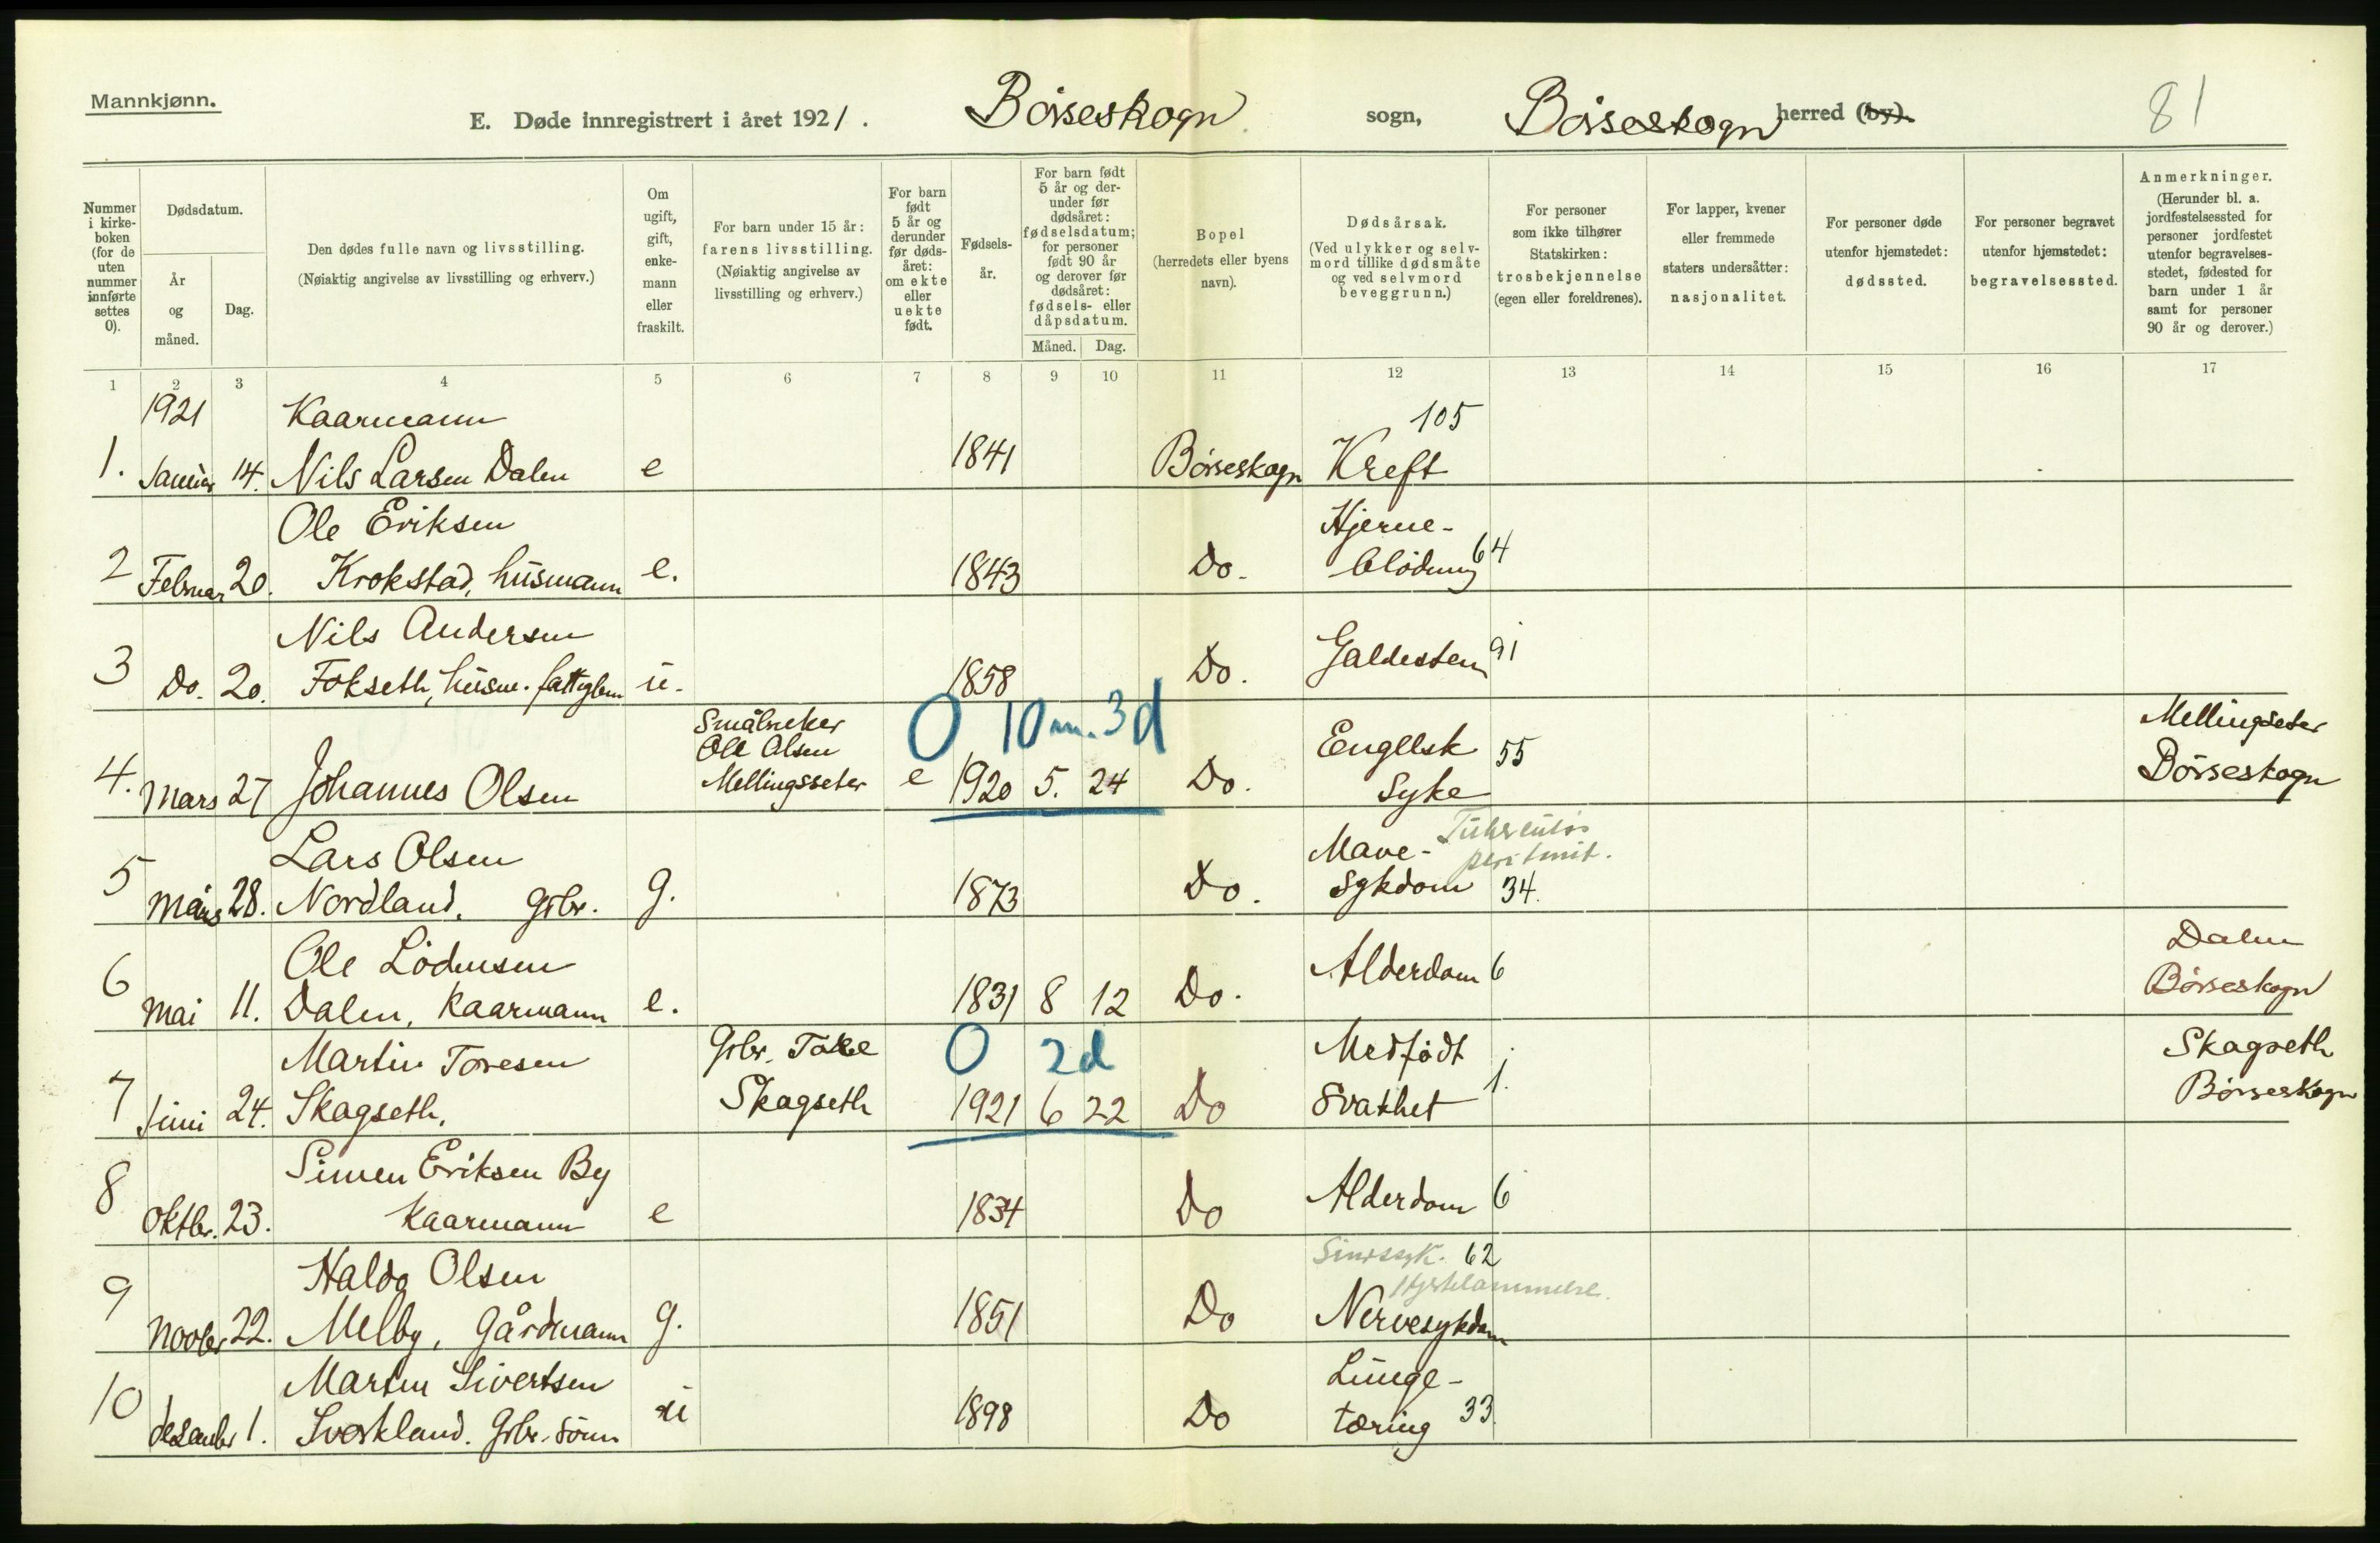 Mannkjønn.
E. Døde innregistrert i året 1921. Børseskogn sogn, Børseskogn herred (by).
81
Nummer i kirkeboken (for de uten nummer innførte settes 0).
Dødsdatum.
År og måned.
Dag.
Den dødes fulle navn og livsstilling.
(Nøiaktig angivelse av livsstilling og erhverv.)
Om ugift, gift, enkemann eller fraskilt.
For barn under 15 år: farens livsstilling.
(Nøiaktig angivelse av livsstilling og erhverv.)
For barn født 5 år og derunder før dødsåret: om ekte eller uekte født.
Fødselsår.
For barn født 5 år og derunder før dødsåret: fødselsdatum; for personer født 90 år og derover før dødsåret: fødsels- eller dåpsdatum.
Måned. Dag.
Bopel (herredets eller byens navn).
Dødsårsak.
(Ved ulykker og selvmord tillike dødsmåte og ved selvmord beveggrunn.)
For personer som ikke tilhører Statskirken: trosbekjennelse (egen eller foreldrenes).
For lapper, kvener eller fremmede staters undersåtter: nasjonalitet.
For personer døde utenfor hjemstedet: dødssted.
For personer begravet utenfor hjemstedet: begravelsessted.
Anmerkninger.
(Herunder bl. a. jordfestelsessted for personer jordfestet utenfor begravelsesstedet, fødested for barn under 1 år samt for personer 90 år og derover.)
1 2 3 4 5 6 7 8 9 10 11 12 13 14 15 16 17
1921 Kaarmann 105
1. Januar 14. Nils Larsen Dalen e 1841 Børseskogn Kreft
Ole Eriksen Hjerne-
2 Februar 20. Krokstad, husmann e. 1843 Do. blødning 64
Nils Andersen
3 Do. 20. Fokseth, husm. fattiglem u. 1858 Do. Galdesten 91
Småbruker 0 10 m. 3 d Mellingseter
Ole Olsen Engelsk 55
4. Mars 27 Johannes Olsen Mellingsseter e 1920 5. 24 Do. Syke Børseskogn
Lars Olsen Mave- Tuberculøs peritonit.
5 Mars 28. Nordland. Gbr. g. 1873 Do. sykdom 34.
Ole Lødemsen Dalen
6 Mai 11. Dalen, Kaarmann e. 1831 8 12 Do. Alderdom 6 Børseskogn
Martin Toresen Gbr. Tore 0 2 d Medfødt Skagseth
7 Juni 24. Skagseth. Skagseth 1921 6 22 Do Svakhet 1. Børseskogn
Simen Eriksen By
8 Oktbr. 23. Kaarmann e 1834 Do Alderdom 6
Haldo Olsen Sinssyk. 62 Hjertelammelse.
9 Novbr 22. Melby, Gårdmann g. 1851 Do Nervesykdom
Martin Sivertsen Lunge-
10 desember 1. Sverkland. Gbr. sønn u 1898 Do tæring 33